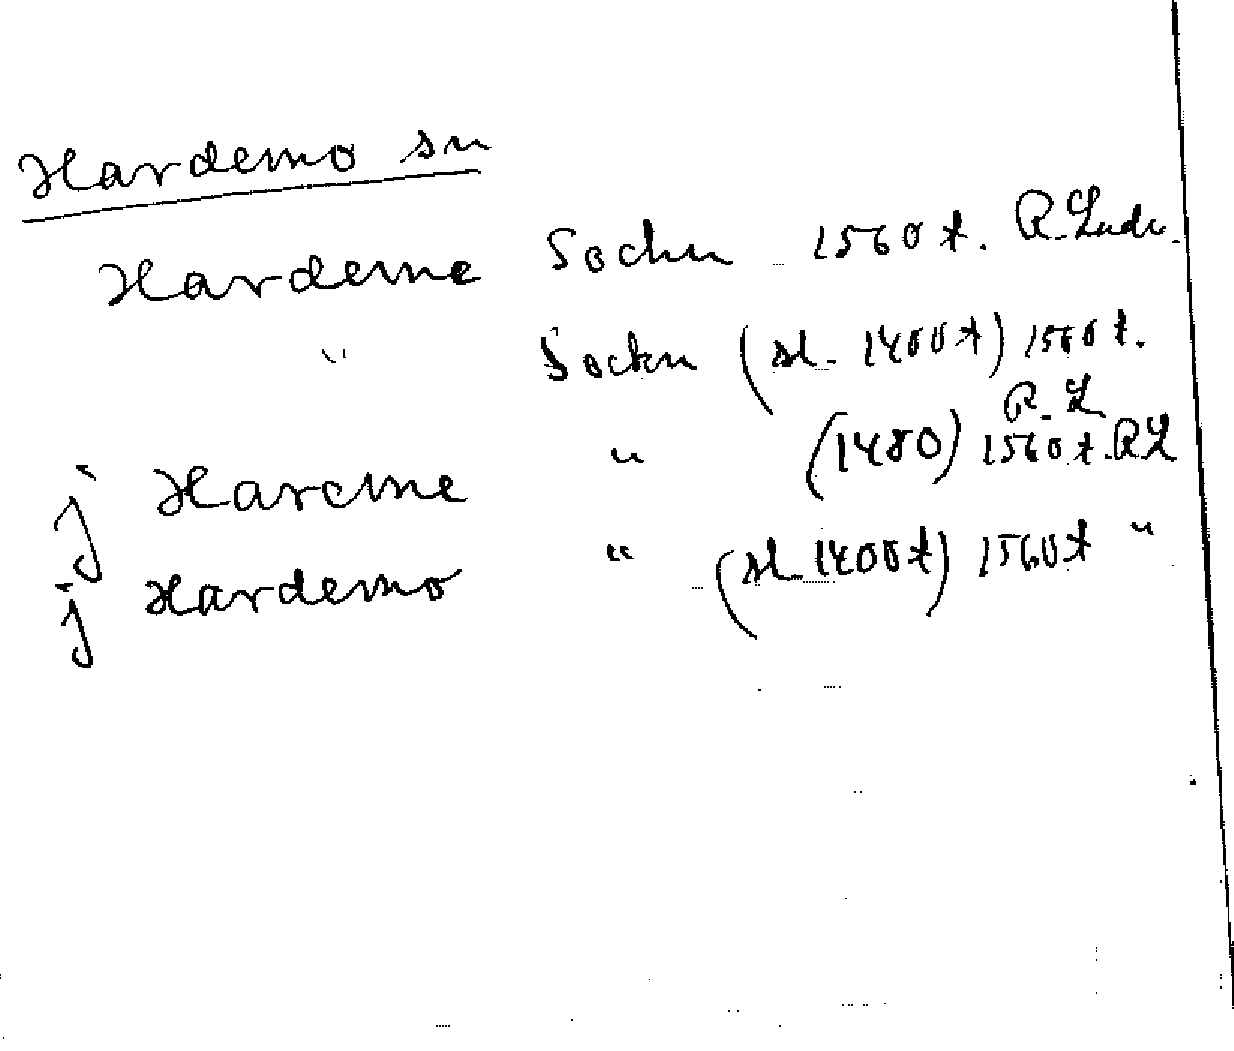 Hardemo sn
Hardeme Sochn 1560 t. R. Ludv.
" Sockn (sl. 1400 t) 1560 t.
R. L
j Harcme " (1480) 1560 t. RL
j Hardemo " (sl. 1400 t) 1560 t "